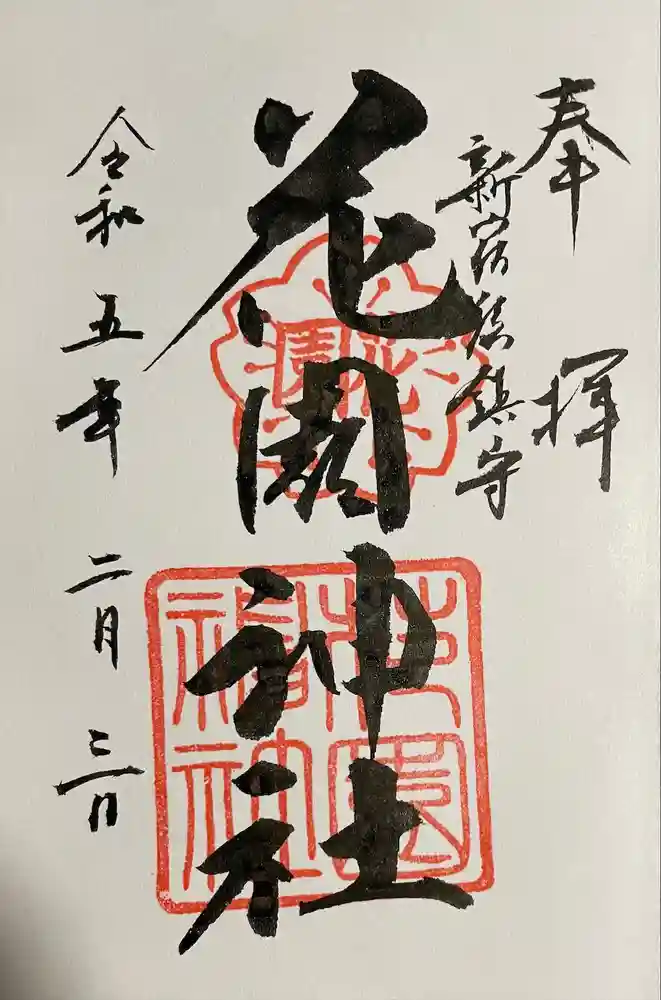 奉拝
新宿総鎮守
花園神社
令和五年二月三日
花園
花園神社